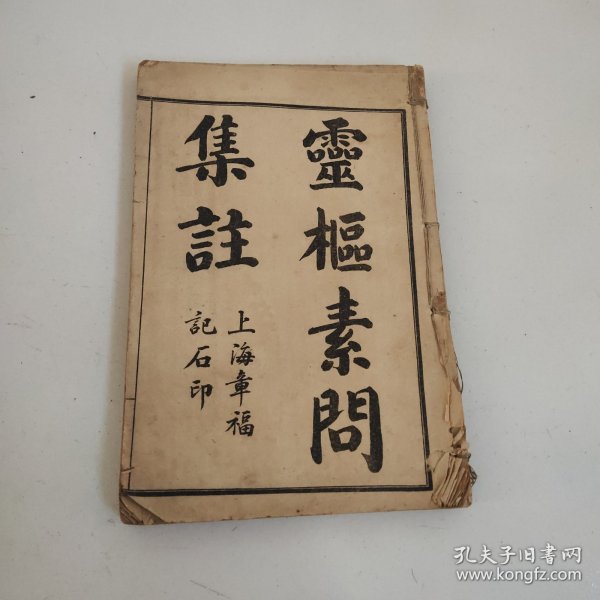 靈樞素問
集註
上海章福
記石印
孔夫子旧书网
www.kongfz.com